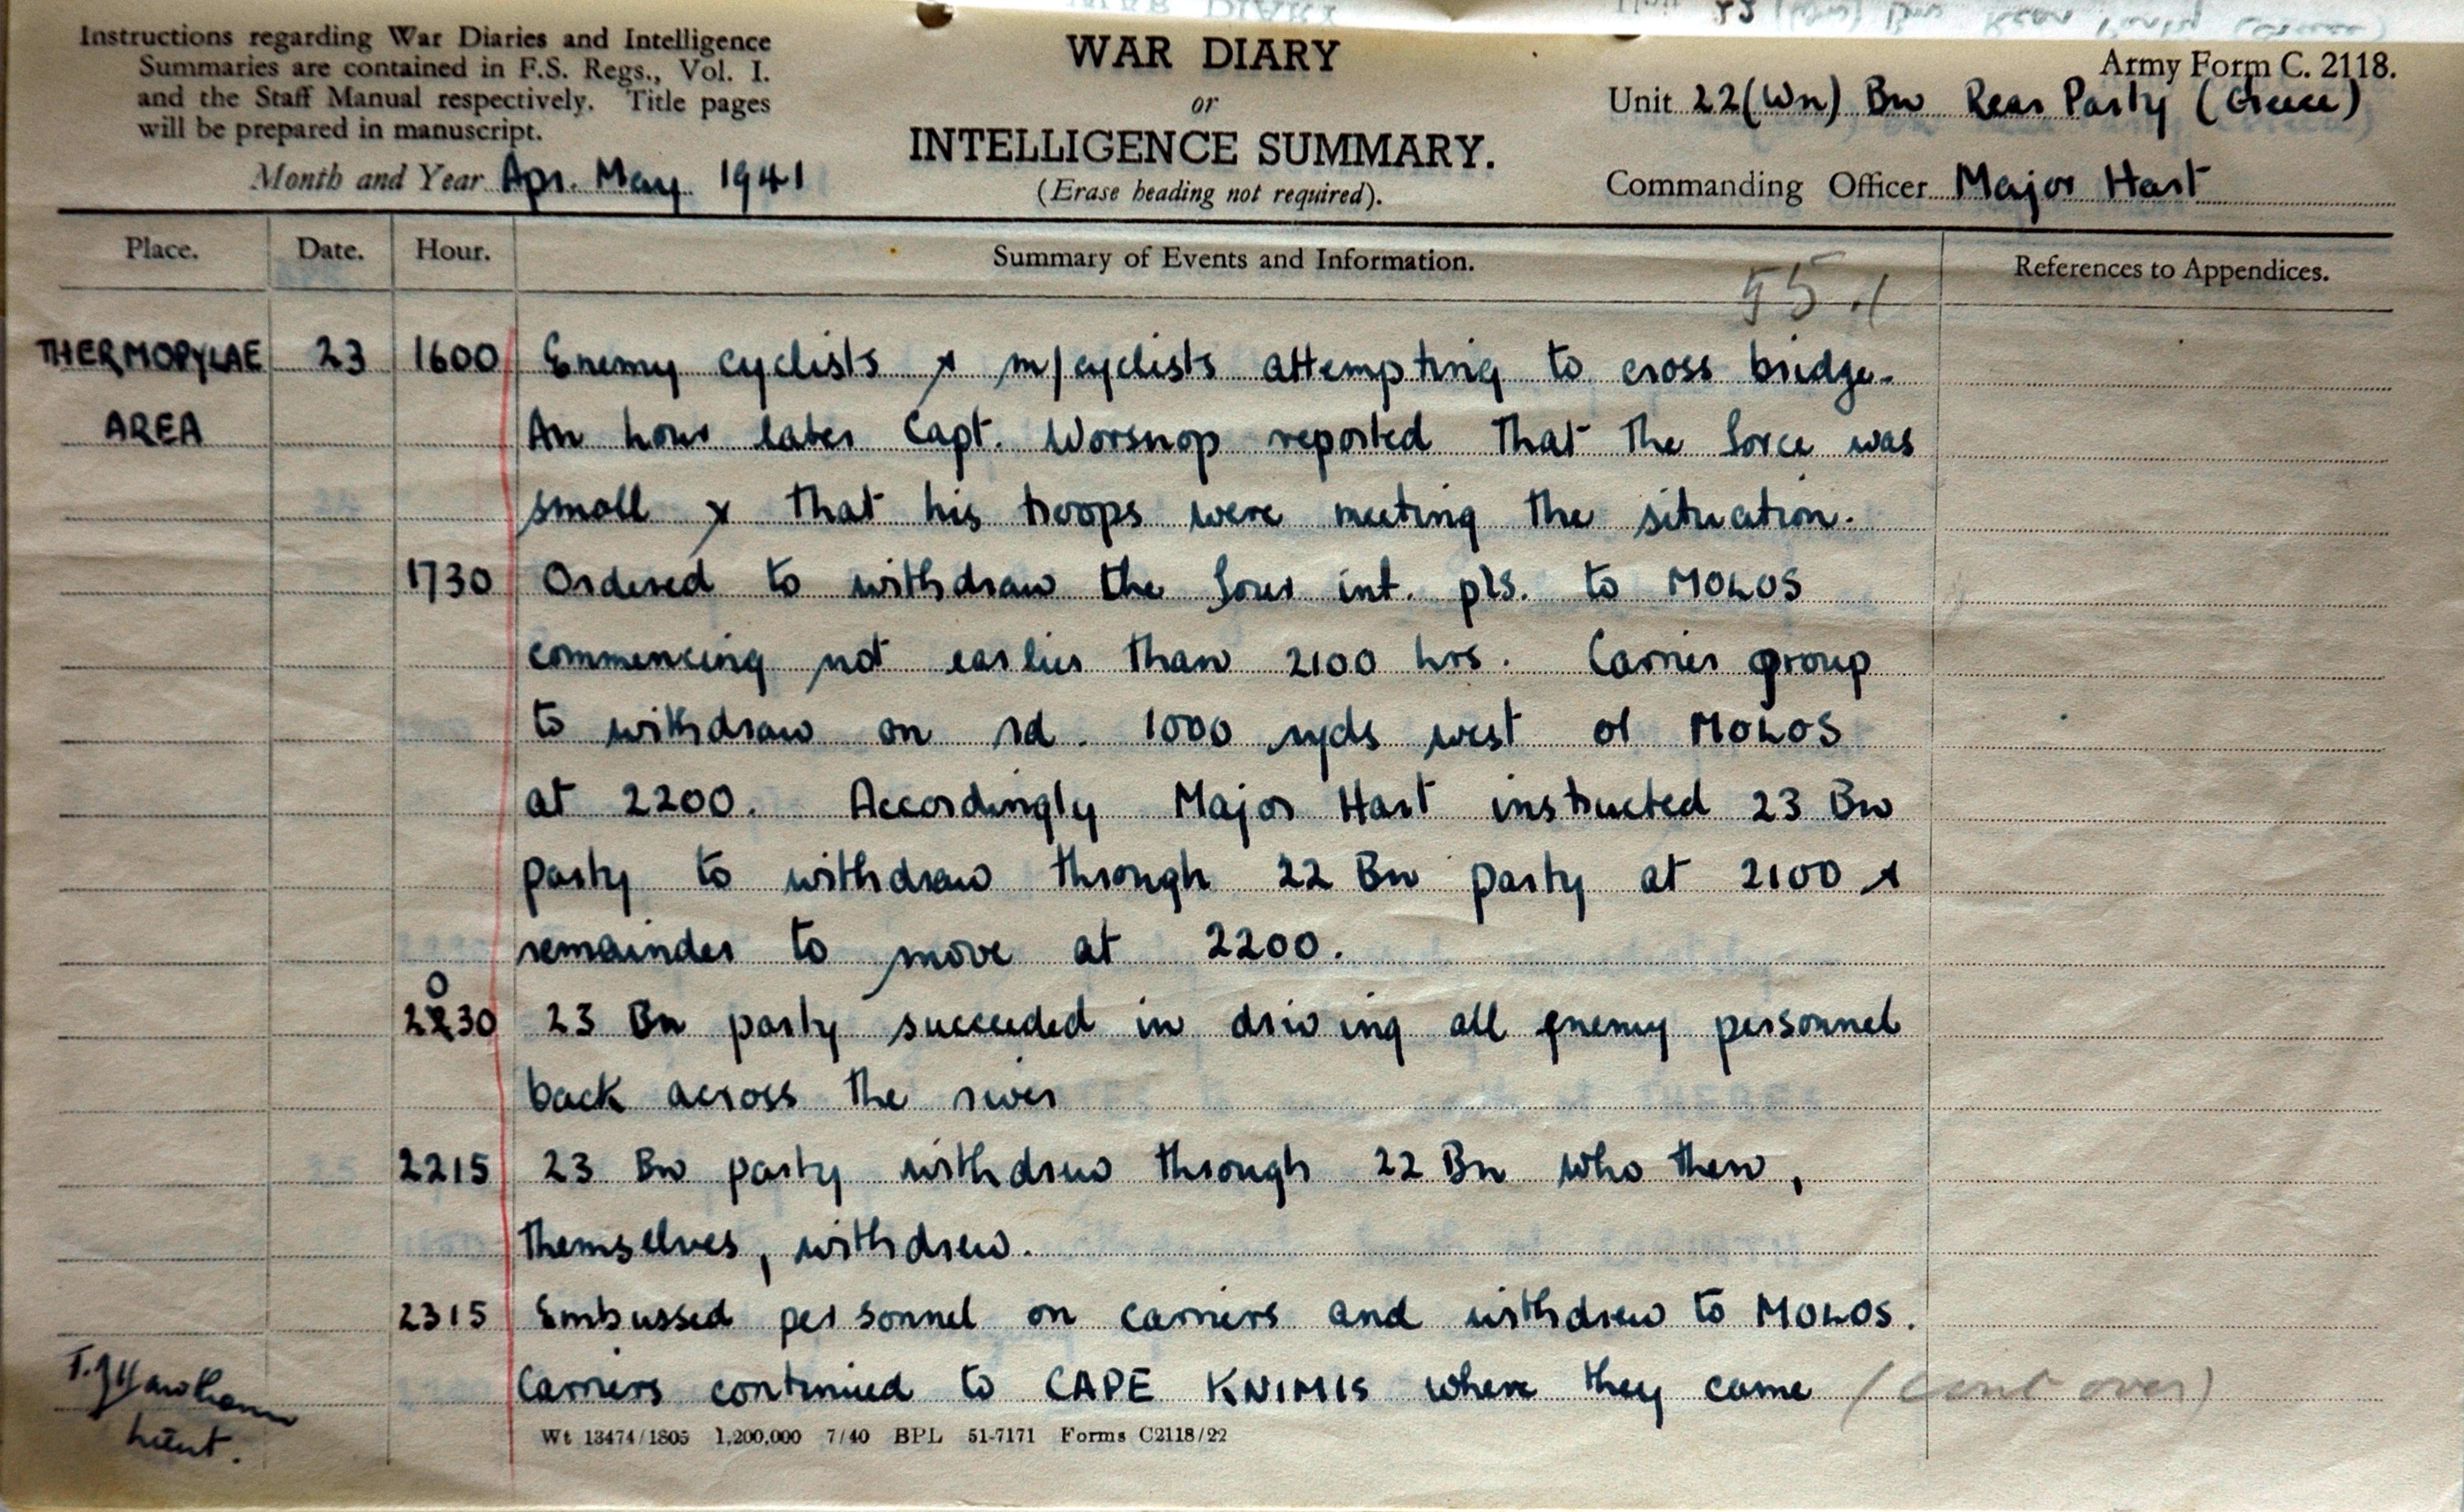 Instructions regarding War Diaries and Intelligence
Summaries are contained in F.S. Regs., Vol. I.
and the Staff Manual respectively. Title pages
will be prepared in manuscript.
Month and Year Apr. May 1941
WAR DIARY
or
INTELLIGENCE SUMMARY.
(Erase heading not required).
Army Form C. 2118.
Unit 22 (Wn) Bn Rear Party (Greece)
Commanding Officer Major Hart
Place. Date. Hour. Summary of Events and Information. References to Appendices.
55
THERMOPYLAE 23 1600 Enemy cyclists & m/cyclists attempting to cross bridge.
AREA An hour later Capt. Worsnop reported that the force was
small & that his troops were meeting the situation.
1730 Ordered to withdraw the four inf. pls. to MOLOS
commencing not earlier than 2100 hrs. Carrier group
to withdraw on rd. 1000 yds west of MOLOS
at 2200. Accordingly Major Hart instructed 23 Bn
party to withdraw through 22 Bn party at 2100 &
remainder to move at 2200.
2030 23 Bn party succeeded in driving all enemy personnel
back across the river
2215 23 Bn party withdrew through 22 Bn who then,
themselves, withdrew.
2315 Embussed personnel on carriers and withdrew to MOLOS.
Carriers continued to CAPE KNIMIS where they came (cont over)
Lieut.
Wt 13474/1805 1,200,000 7/40 BPL 51-7171 Forms C2118/22